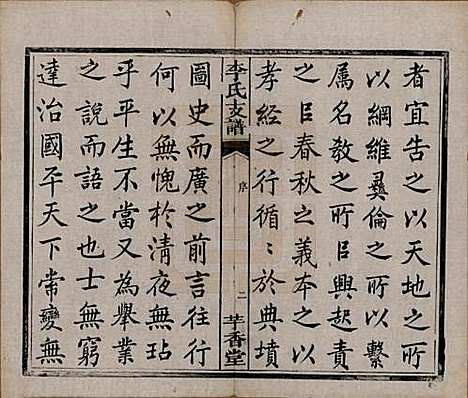 者宜告之以天地之
以綱維彞倫之所以繫
属名教之所㠯興起責
之㠯春秋之義本之以
孝經之行循﹕於典墳
李氏支譜
序
二
芋香堂
圖史而廣之前言往行
何以無愧於清夜無玷
乎平生不當又為舉業
之說而語之也士無窮
達治國平天下常變無